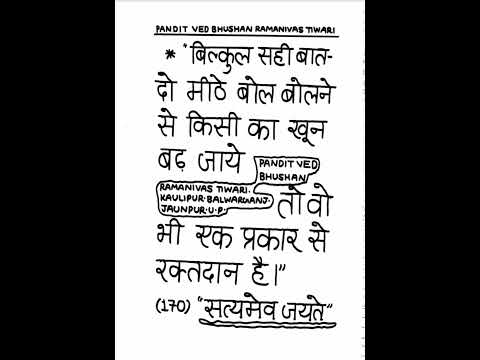 PANDIT VED BHUSHAN RAMANIVAS TIWARI
* "बिल्कुल सही बात-
दो मीठे बोल बोलने
से किसी का खून
बढ़ जाये PANDIT VED
BHUSHAN
RAMANIVAS TIWARI.
KAULIPUR. BALWARGANJ.
JAUNPUR. U.P.
तो वो
भी एक प्रकार से
रक्तदान है।"
(170) "सत्यमेव जयते"